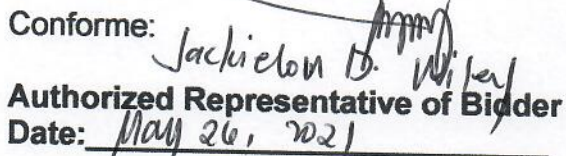 Conforme:
Jackielon D.
Authorized Representative of Bidder
Date: May 26, 2021